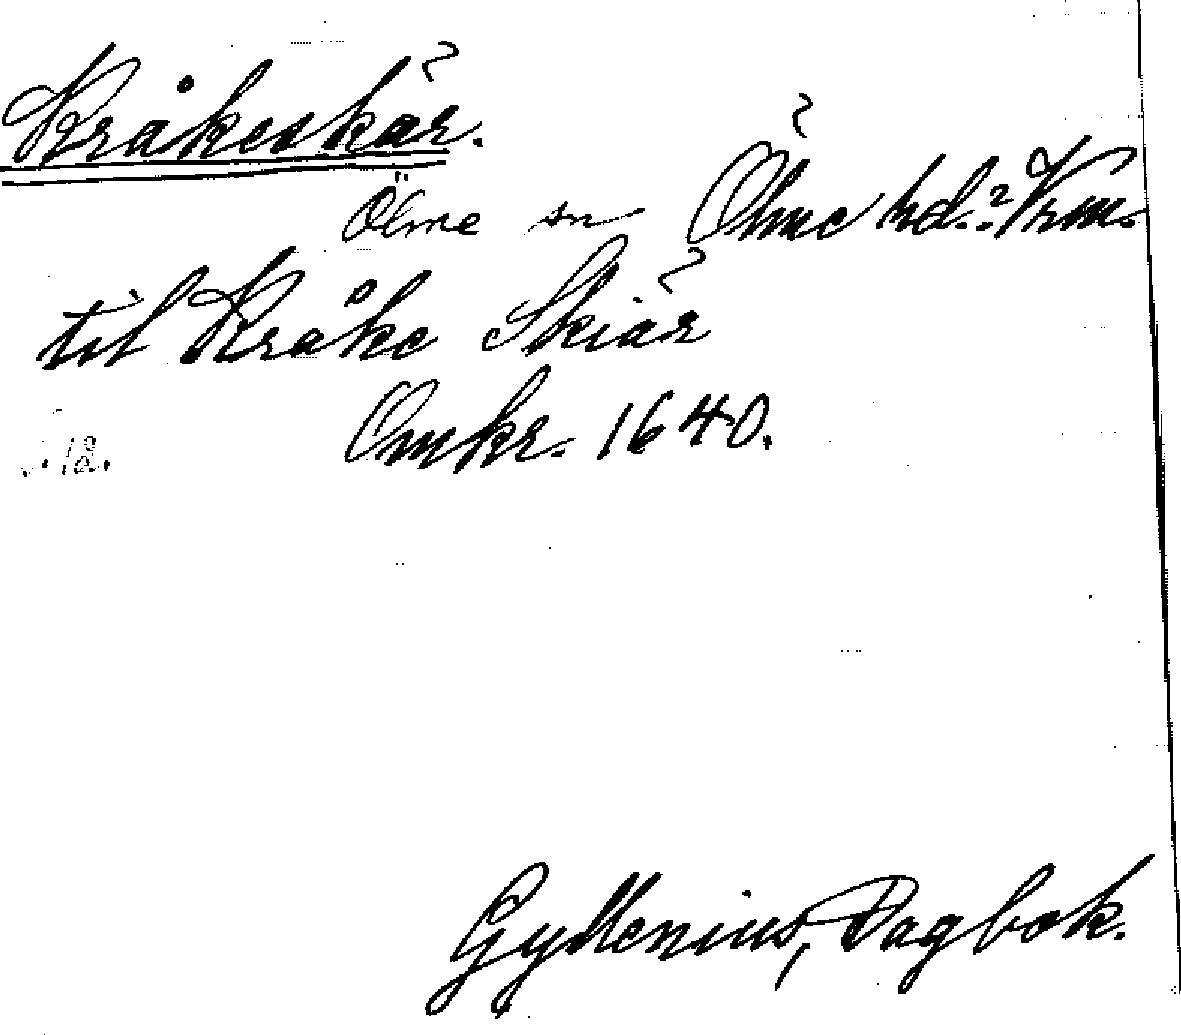 Kråkeskär.
Ölme sn Ölme hd.? Vrm.
til Kråke Skiär
Omkr. 1640.
s. 12.
Gyllenius, Dagbok.